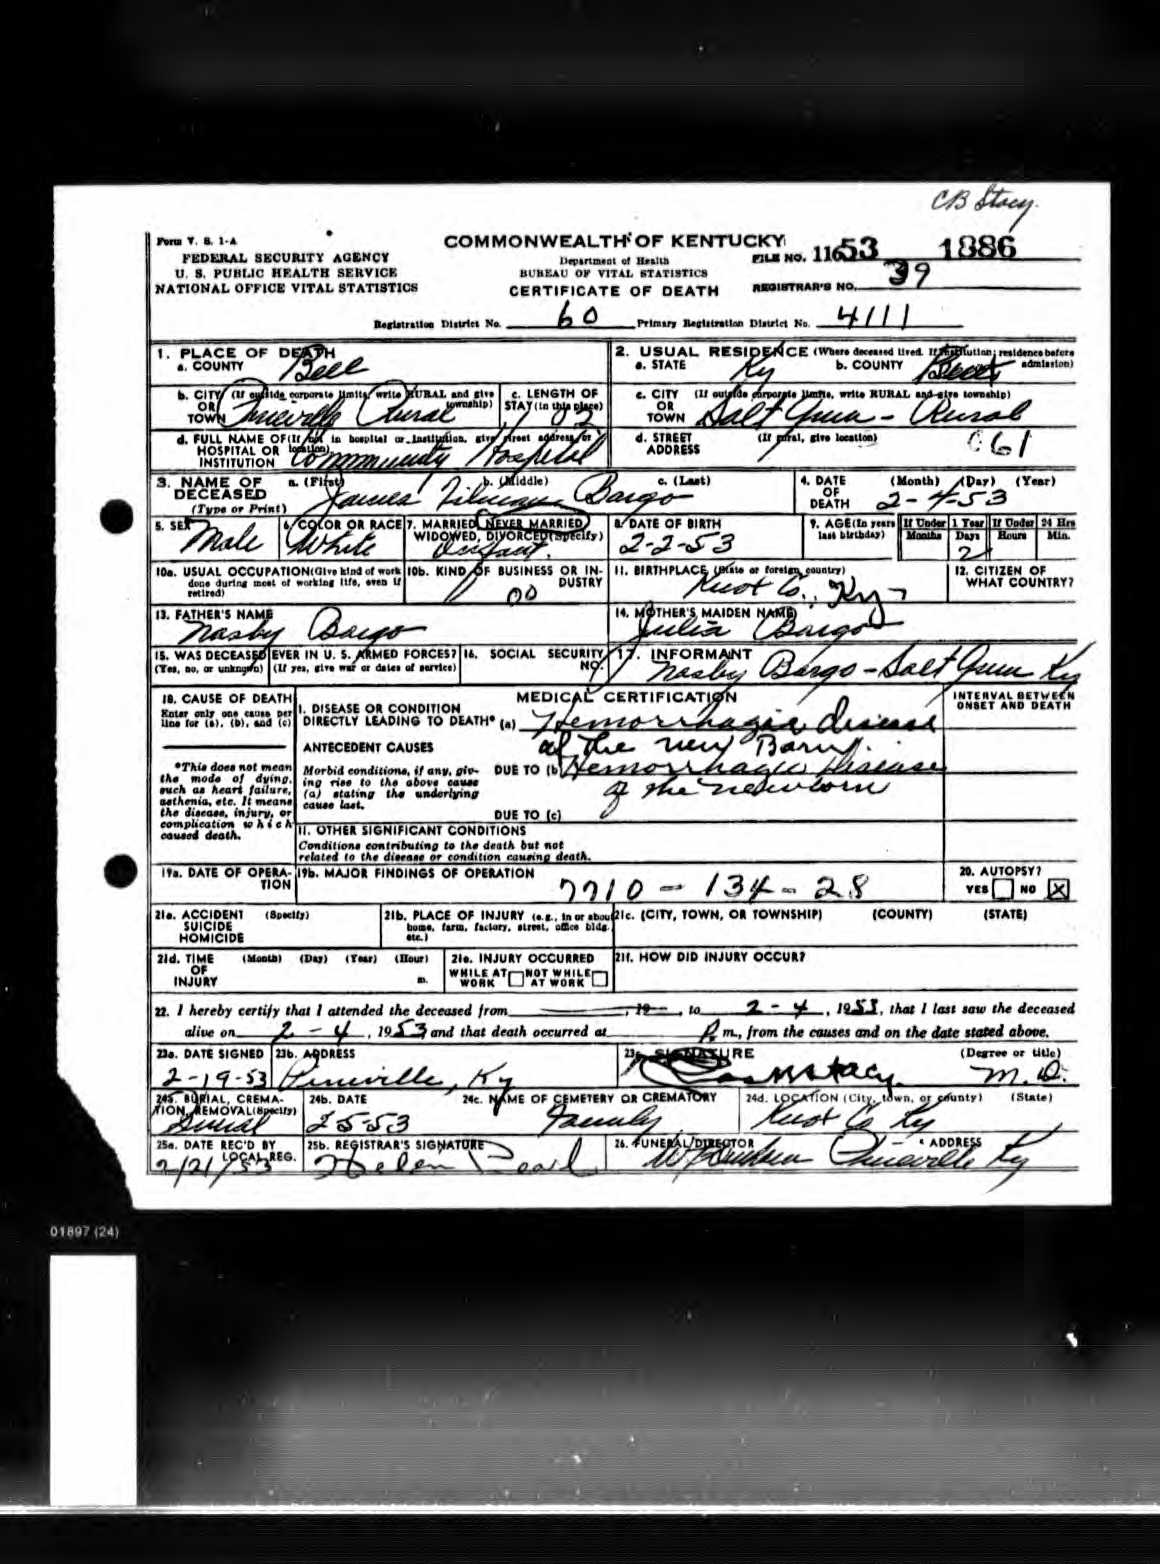 CB Stacy.
Form V. S. 1-A
FEDERAL SECURITY AGENCY
U. S. PUBLIC HEALTH SERVICE
NATIONAL OFFICE VITAL STATISTICS
COMMONWEALTH OF KENTUCKY
Department of Health
BUREAU OF VITAL STATISTICS
CERTIFICATE OF DEATH
FILE NO. 116 53 1886
REGISTRAR'S NO. 39
Registration District No. 60 Primary Registration District No. 4111
1. PLACE OF DEATH
a. COUNTY Bell
2. USUAL RESIDENCE (Where deceased lived. If institution: residence before admission)
a. STATE Ky b. COUNTY
b. CITY (If outside corporate limits, write RURAL and give township)
OR
TOWN Pineville Rural
c. LENGTH OF
STAY (in this place)
c. CITY (If outside corporate limits, write RURAL and give township)
OR
TOWN Salt Gum - Rural
d. FULL NAME OF (If not in hospital or institution, give street address or location)
HOSPITAL OR
INSTITUTION Community Hospital
d. STREET (If rural, give location)
ADDRESS 061
3. NAME OF DECEASED (Type or Print)
a. (First) b. (Middle) c. (Last)
James Bargo
4. DATE OF DEATH (Month) (Day) (Year)
2-4-53
5. SEX Male
6. COLOR OR RACE White
7. MARRIED, NEVER MARRIED
WIDOWED, DIVORCED (Specify)
Infant.
8. DATE OF BIRTH
2-2-53
9. AGE (In years last birthday)
If Under 1 Year Months Days 2
If Under 24 Hrs Hours Min.
10a. USUAL OCCUPATION (Give kind of work done during most of working life, even if retired)
10b. KIND OF BUSINESS OR INDUSTRY
00
11. BIRTHPLACE (State or foreign country)
Knox Co., Ky
12. CITIZEN OF WHAT COUNTRY?
13. FATHER'S NAME
Nasby Bargo
14. MOTHER'S MAIDEN NAME
Julia Bargo
15. WAS DECEASED EVER IN U. S. ARMED FORCES?
(Yes, no, or unknown) (If yes, give war or dates of service)
16. SOCIAL SECURITY NO.
17. INFORMANT
Nasby Bargo - Salt Gum Ky
18. CAUSE OF DEATH
Enter only one cause per line for (a), (b), and (c)
*This does not mean the mode of dying, such as heart failure, asthenia, etc. It means the disease, injury, or complication which caused death.
MEDICAL CERTIFICATION
INTERVAL BETWEEN ONSET AND DEATH
I. DISEASE OR CONDITION
DIRECTLY LEADING TO DEATH* (a) Hemorrhagic disease
of the new Born
ANTECEDENT CAUSES
Morbid conditions, if any, giving rise to the above cause (a) stating the underlying cause last.
DUE TO (b) Hemorrhagic Disease
of the newborn
DUE TO (c)
II. OTHER SIGNIFICANT CONDITIONS
Conditions contributing to the death but not
related to the disease or condition causing death.
19a. DATE OF OPERATION
19b. MAJOR FINDINGS OF OPERATION
7710 - 134 - 28
20. AUTOPSY?
YES NO X
21a. ACCIDENT (Specify)
SUICIDE
HOMICIDE
21b. PLACE OF INJURY (e.g., in or about home, farm, factory, street, office bldg. etc.)
21c. (CITY, TOWN, OR TOWNSHIP) (COUNTY) (STATE)
21d. TIME OF INJURY (Month) (Day) (Year) (Hour) m.
21e. INJURY OCCURRED
WHILE AT WORK NOT WHILE AT WORK
21f. HOW DID INJURY OCCUR?
22. I hereby certify that I attended the deceased from , 19 , to 2 - 4 , 1953, that I last saw the deceased
alive on 2 - 4 , 1953 and that death occurred at P. m., from the causes and on the date stated above.
23a. DATE SIGNED
2-19-53
23b. ADDRESS
Pineville, Ky
23c. SIGNATURE (Degree or title)
Stacy M.D.
24a. BURIAL, CREMATION, REMOVAL (Specify)
Burial
24b. DATE
2 5-53
24c. NAME OF CEMETERY OR CREMATORY
Family
24d. LOCATION (City, town, or county) (State)
Knox Co Ky
25a. DATE REC'D BY LOCAL REG.
2/21/53
25b. REGISTRAR'S SIGNATURE
Helen Pearl
26. FUNERAL DIRECTOR ADDRESS
Pineville Ky
01897 (24)